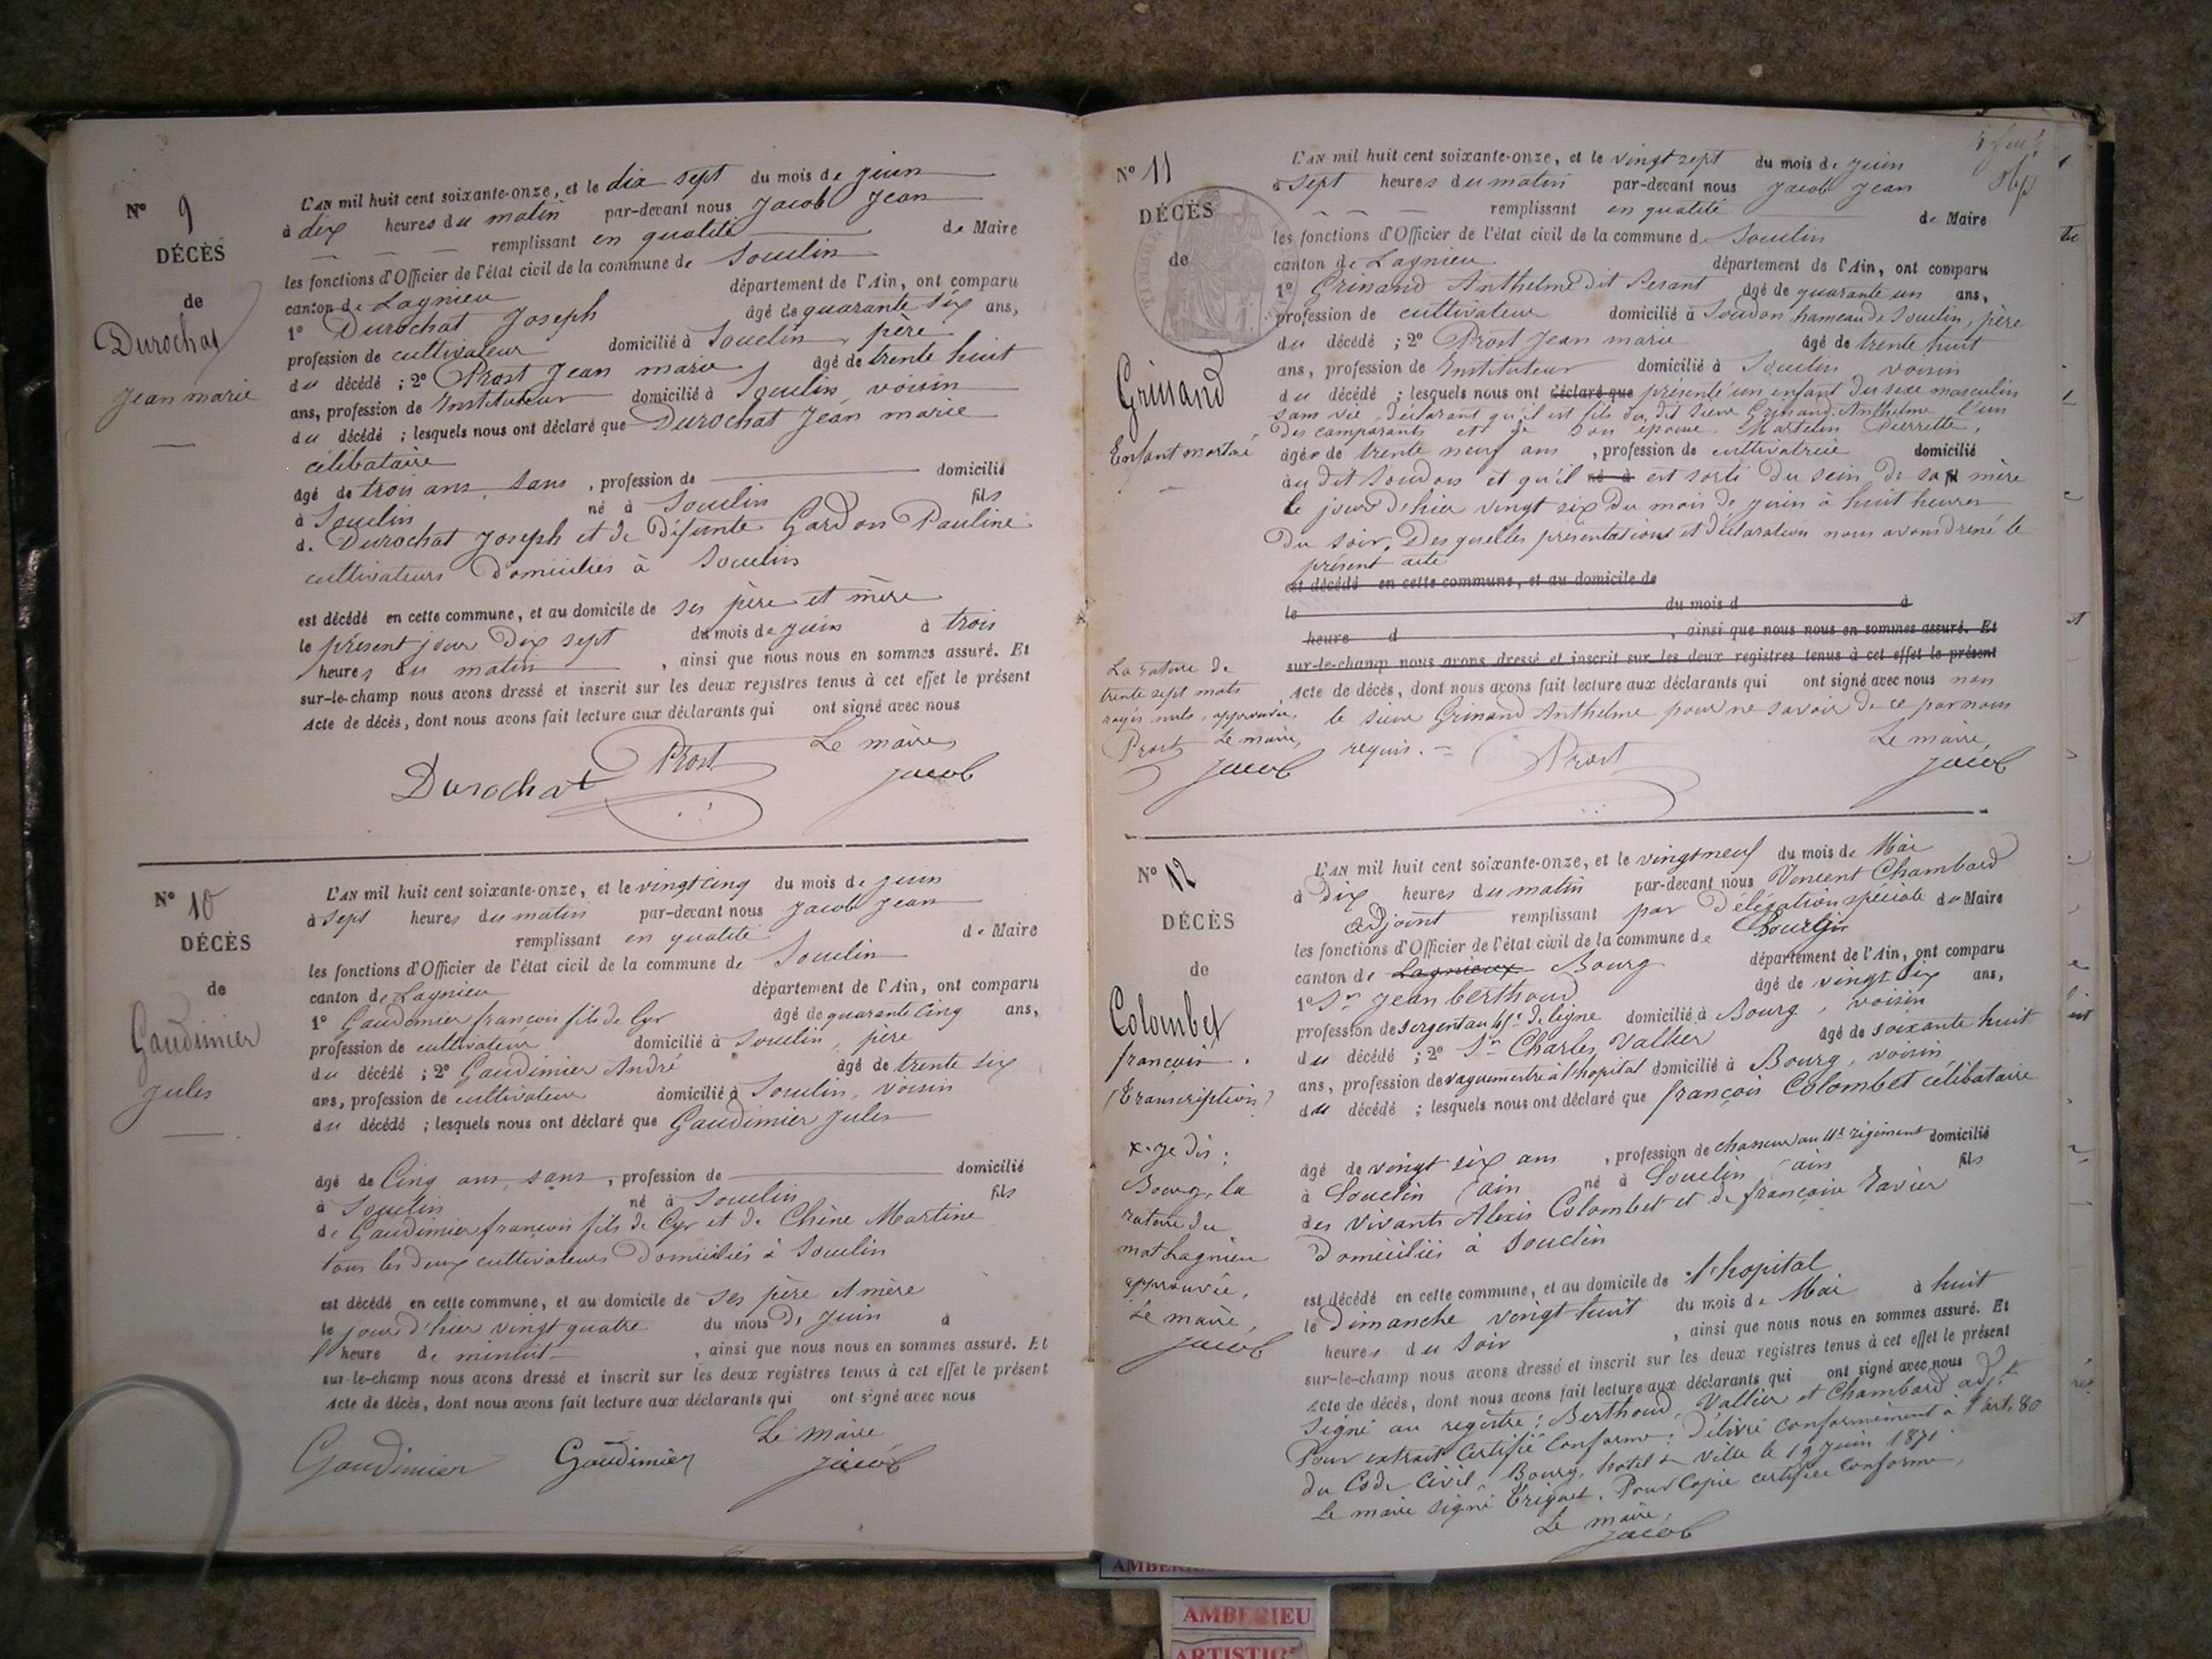 N° 9
DÉCÈS
de
Durochat
Jean marie
L'AN mil huit cent soixante-onze, et le dix sept du mois de juin
à dix heures du matin par-devant nous Jacob Jean
remplissant en qualité de Maire
les fonctions d'Officier de l'état civil de la commune de Souclin
canton de Lagnieu département de l'Ain, ont comparu
1° Durochat Joseph âgé de quarante six ans,
profession de cultivateur domicilié à Souclin, père
du décédé ; 2° Prost Jean marie âgé de trente huit
ans, profession de Instituteur domicilié à Souclin, voisin
du décédé ; lesquels nous ont déclaré que Durochat Jean marie
célibataire
âgé de trois ans, sans, profession de domicilié
à Souclin né à Souclin fils
de Durochat Joseph et de Défunte Gardon Pauline
cultivateurs domiciliés à Souclin
est décédé en cette commune, et au domicile de ses père et mère
le présent jour dix sept du mois de juin à trois
heures du matin, ainsi que nous nous en sommes assuré. Et
sur-le-champ nous avons dressé et inscrit sur les deux registres tenus à cet effet le présent
Acte de décès, dont nous avons fait lecture aux déclarants qui ont signé avec nous
Le maire,
Durochat Prost Jacob
N° 10
DÉCÈS
de
Gaudimier
Jules
L'AN mil huit cent soixante-onze, et le vingt cinq du mois de juin
à sept heures du matin par-devant nous Jacob Jean
remplissant en qualité de Maire
les fonctions d'Officier de l'état civil de la commune de Souclin
canton de Lagnieu département de l'Ain, ont comparu
1° Gaudimier françois fils de Cyr âgé de quarante cinq ans,
profession de cultivateur domicilié à Souclin, père
du décédé ; 2° Gaudimier André âgé de trente six
ans, profession de cultivateur domicilié à Souclin, voisin
du décédé ; lesquels nous ont déclaré que Gaudimier Jules
âgé de Cinq ans, sans, profession de domicilié
à Souclin né à Souclin fils
de Gaudimier françois fils de Cyr et de Chêne Martine
tous les deux cultivateurs domiciliés à Souclin
est décédé en cette commune, et au domicile de ses père et mère
le jour d'hier vingt quatre du mois de juin à
l'heure de minuit, ainsi que nous nous en sommes assuré. Et
sur-le-champ nous avons dressé et inscrit sur les deux registres tenus à cet effet le présent
Acte de décès, dont nous avons fait lecture aux déclarants qui ont signé avec nous
Le maire
Gaudimier Gaudimier Jacob
N° 11
DÉCÈS
de
Grinand
Enfant mort né
L'AN mil huit cent soixante-onze, et le vingt sept du mois de juin
à sept heures du matin par-devant nous Jacob Jean
remplissant en qualité de Maire
les fonctions d'Officier de l'état civil de la commune de Souclin
canton de Lagnieu département de l'Ain, ont comparu
1° Grinand Anthelme dit Perant âgé de quarante un ans,
profession de cultivateur domicilié à Soudon hameau de Souclin, père
du décédé ; 2° Prost Jean marie âgé de trente huit
ans, profession de Instituteur domicilié à Souclin voisin
du décédé ; lesquels nous ont déclaré que présenté un enfant du sexe masculin
sans vie, déclarant qu'il est fils du dit sieur Grinand Anthelme, l'un
des comparants et de son épouse, Martelin Pierrette,
âgée de trente neuf ans, profession de cultivatrice domicilié
au dit Soudon et qu'il né à est sorti du sein de sa mère
le jour d'hier vingt six du mois de juin à huit heures
du soir. Desquelles présentations et déclaration nous avons dressé le
présent acte
est décédé en cette commune, et au domicile de
le du mois d à
heure d , ainsi que nous nous en sommes assuré. Et
sur-le-champ nous avons dressé et inscrit sur les deux registres tenus à cet effet le présent
Acte de décès, dont nous avons fait lecture aux déclarants qui ont signé avec nous non
le sieur Grinand Anthelme pour ne savoir de ce par nous
requis.
La rature de
trente sept mots
rayés nuls, approuvée,
Prost Le maire,
Jacob
Le maire,
Prost Jacob
N° 12
DÉCÈS
de
Colombet
françois.
(Transcription)
L'AN mil huit cent soixante-onze, et le vingt neuf du mois de Mai
à Dix heures du matin par-devant nous Vincent Chambard
adjoint remplissant par Délégation spéciale du Maire
les fonctions d'Officier de l'état civil de la commune de Bourg
canton de Lagnieux Bourg département de l'Ain, ont comparu
1° Sr Jean berthoud âgé de vingt six ans,
profession de sergent au 45e de ligne domicilié à Bourg, voisin
du décédé ; 2° Sr Charles Vallier âgé de soixante huit
ans, profession de vaguemestre à l'hopital domicilié à Bourg, voisin
du décédé ; lesquels nous ont déclaré que françois Colombet célibataire
âgé de vingt six ans, profession de chasseur au régiment domicilié
à Souclin ain né à Souclin ain fils
des vivants Alexis Colombet et de françoise Ravier
domiciliés à Souclin
est décédé en cette commune, et au domicile de l'hopital
le Dimanche vingt huit du mois de Mai à huit
heures du soir, ainsi que nous nous en sommes assuré. Et
sur-le-champ nous avons dressé et inscrit sur les deux registres tenus à cet effet le présent
Acte de décès, dont nous avons fait lecture aux déclarants qui ont signé avec nous
Signé au registre : Berthoud, Vallier et Chambard adjt
Pour extrait certifié conforme : Délivré conformément à l'art. 80
du Code Civil. Bourg, hotel de Ville le 19 juin 1871.
Le maire signé Compte. Pour Copie certifiée conforme,
Le maire,
Jacob
x. Je dis :
Bourg, la
rature du
mot Lagnieu
approuvée,
Le maire,
Jacob
AMBERIEU
ARTISTIC